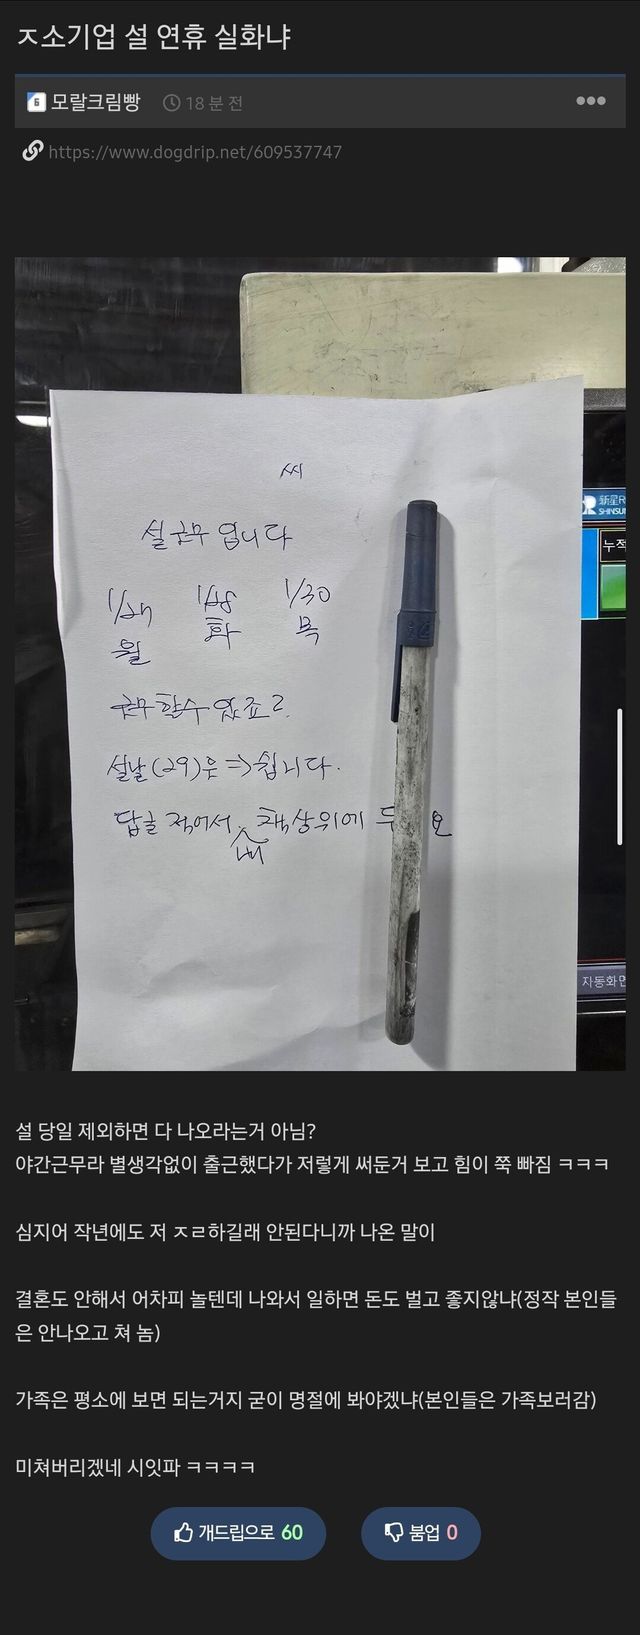 ㅈ소기업 설 연휴 실화냐
6 모랄크림빵 18 분 전
https://www.dogdrip.net/609537747
씨
설 근무 입니다
1/27 1/28 1/30
월 화 목
근무 할수 있죠?
설날(29)은 => 쉽니다.
답글 적어서 내 책상위에 두 요
新星
SHINSU
누적
자동화면
설 당일 제외하면 다 나오라는거 아님?
야간근무라 별생각없이 출근했다가 저렇게 써둔거 보고 힘이 쭉 빠짐 ㅋㅋㅋ
심지어 작년에도 저 ㅈㄹ하길래 안된다니까 나온 말이
결혼도 안해서 어차피 놀텐데 나와서 일하면 돈도 벌고 좋지않냐(정작 본인들
은 안나오고 쳐 놈)
가족은 평소에 보면 되는거지 굳이 명절에 봐야겠냐(본인들은 가족보러감)
미쳐버리겠네 시잇파 ㅋㅋㅋㅋ
개드립으로 60 붐업 0